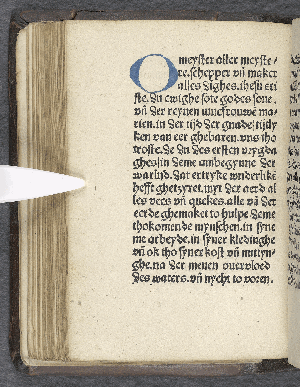 O meyster aller meyste-
re. schepper vñ maker
alles dinghes. ihesu cri
ste. du ewighe sote godes sone.
vñ der reynen iuncfrouwe ma-
rien. in der tijd der gnade
ken van eer ghebaren. vns tho
troste. de du des ersten
ghes in deme anbegynne der
warlid. dat ertryke
hefft ghetzyret. myt der aerd al
les vees vñ quekes. alle vñ der
eerde ghemaket to hulpe deme
thokomende mynschen. in syne
me arbeyde. in syner kledinghe
vñ ok tho syner kost vñ nuttyn-
ghe. na der menen ouervloed
des waters. vñ nycht to voren.